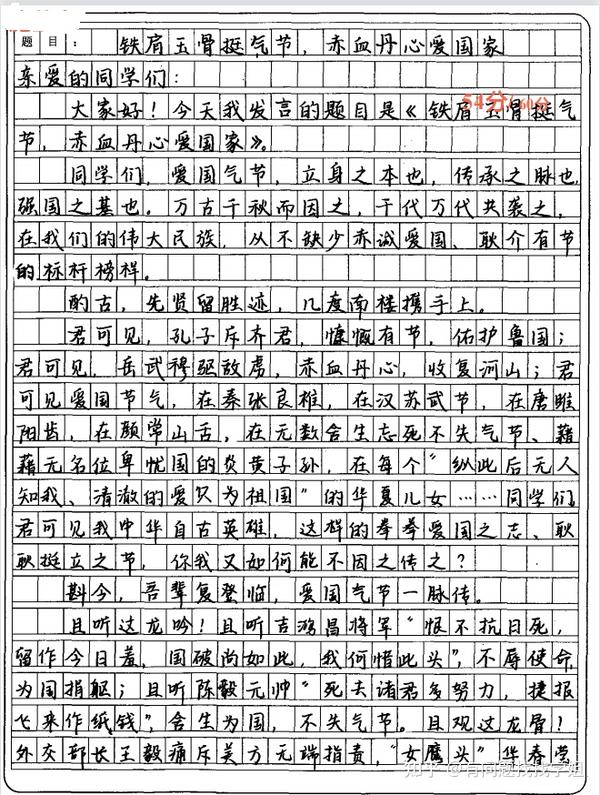 题目：铁肩玉骨挺气节，赤血丹心爱国家
亲爱的同学们：
54分/60分
大家好！今天我发言的题目是《铁肩玉骨挺气
节，赤血丹心爱国家》。
同学们，爱国气节，立身之本也，传承之脉也，
强国之基也。万古千秋而因之，千代万代共袭之。
在我们的伟大民族，从不缺少赤诚爱国、耿介有节
的标杆榜样。
酌古，先贤留胜迹，几度南楼携手上。
君可见，孔子斥齐君，慷慨有节，佑护鲁国；
君可见，岳武穆驱敌虏，赤血丹心，收复河山；君
可见爱国节气，在秦张良椎，在汉苏武节，在唐睢
阳齿，在颜常山舌，在无数舍生忘死不失气节、籍
籍无名位卑忧国的炎黄子孙，在每个“纵此后无人
知我、清澈的爱只为祖国”的华夏儿女……同学们
君可见我中华自古英雄，这样的拳拳爱国之志、耿
耿挺立之节，你我又如何能不因之传之？
斟今，吾辈复登临，爱国气节一脉传。
且听过龙吟！且听吉鸿昌将军“恨不抗日死，
留作今日羞，国破尚如此，我何惜此头”，不辱使命
为国捐躯；且听陈毅元帅“死去诸君多努力，捷报
飞来作纸钱”，舍生为国，不失气节。且观过龙骨！
外交部长王毅痛斥美方无端指责，“女鹰头”华春莹
知乎 @有问题找找学姐